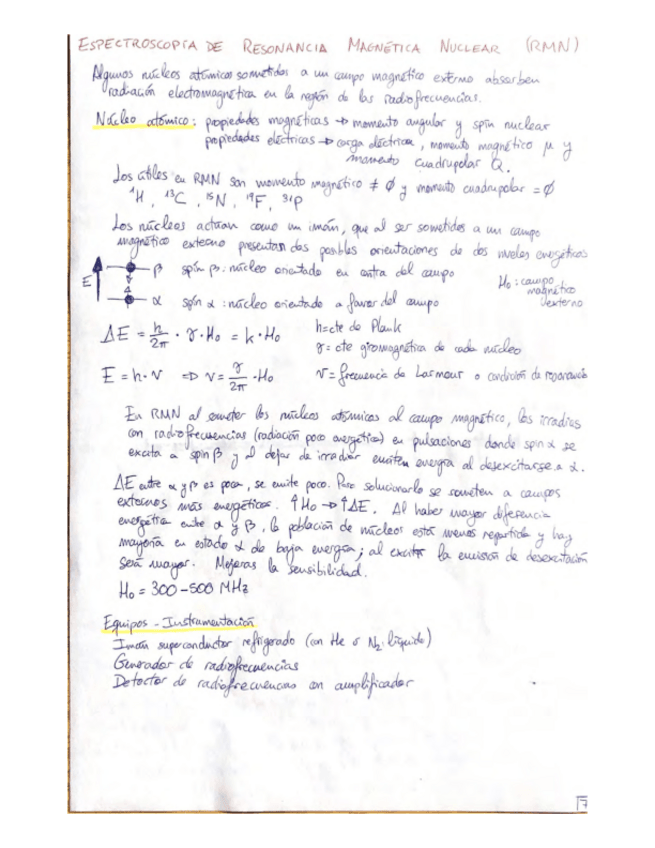 ESPECTROSCOPÍA DE RESONANCIA MAGNÉTICA NUCLEAR (RMN)
Algunos núcleos atómicos sometidos a un campo magnético externo absorben
radiación electromagnética en la región de las radiofrecuencias.
Núcleo atómico: propiedades magnéticas → momento angular y spin nuclear
propiedades eléctricas → carga eléctrica, momento magnético μ y
momento cuadrupolar Q.
Los útiles en RMN son momento magnético ≠ 0 y momento cuadrupolar = 0
¹H, ¹³C, ¹⁵N, ¹⁹F, ³¹P
Los núcleos actúan como un imán, que al ser sometidos a un campo
magnético externo presentan dos posibles orientaciones de dos niveles energéticos
E β spin β: núcleo orientado en contra del campo
H₀: campo magnético externo
α spin α: núcleo orientado a favor del campo
ΔE = h/2π · γ · H₀ = k · H₀
h = cte de Plank
γ = cte giromagnética de cada núcleo
E = h · ν ⇒ ν = γ/2π · H₀
ν = frecuencia de Larmour o condición de resonancia
En RMN al someter los núcleos atómicos al campo magnético, los irradias
con radiofrecuencias (radiación poco energética) en pulsaciones donde spin α se
excita a spin β y al dejar de irradiar emiten energía al desexcitarse a α.
ΔE entre α y β es poca, se emite poco. Para solucionarlo se someten a campos
externos más energéticos. ↑H₀ → ↑ΔE. Al haber mayor diferencia
energética entre α y β, la población de núcleos está menos repartida y hay
mayoría en estado α de baja energía; al excitar la emisión de desexcitación
será mayor. Mejoras la sensibilidad.
H₀ = 300-500 MHz
Equipos - Instrumentación
Imán superconductor refrigerado (con He o N₂ líquido)
Generador de radiofrecuencias
Detector de radiofrecuencias con amplificador
17